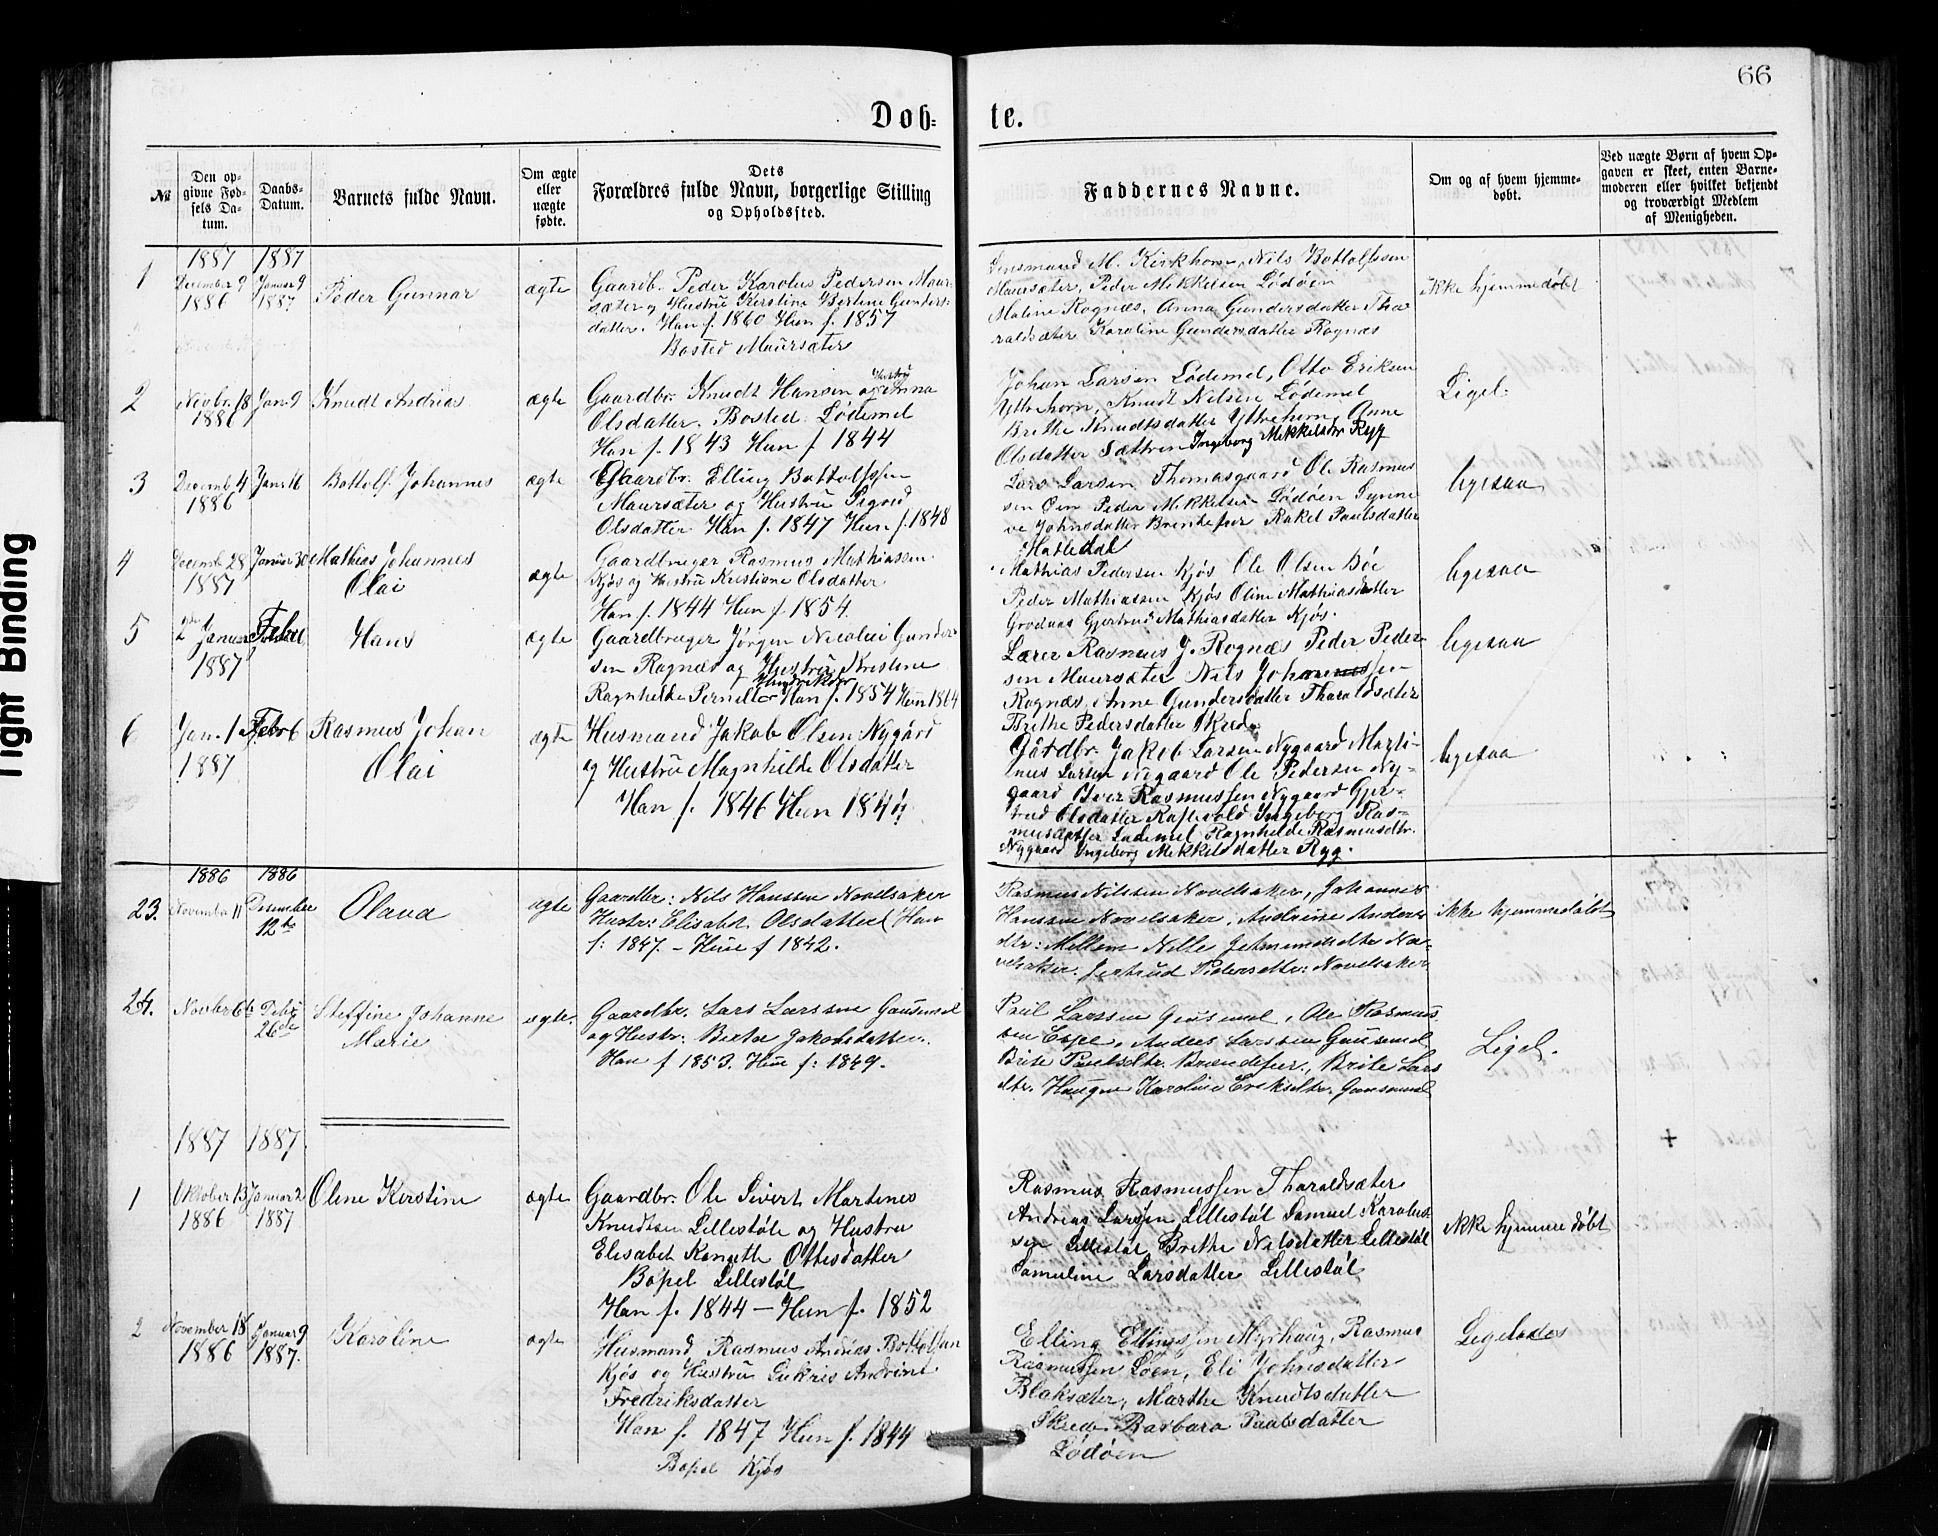 66
Døb- te.
№
Den op-
givne Fød-
sels Da-
tum.
Daabs-
Datum.
Barnets fulde Navn.
Om ægte
eller
uægte
fødte.
Dets
Forældres fulde Navn, borgerlige Stilling
og Opholdssted.
Faddernes Navne.
Om og af hvem hjemme-
døbt.
Ved uægte Børn af hvem Op-
gaven er skeet, enten Barne-
moderen eller hvilket bekjendt
og troværdigt Medlem
af Menigheden.
1887 1887
1
December 9
1886
Januar 9
1887
Peder Gunnar
ægte
Gaardb. Peder Karolus Pedersen Maur-
sæter og Hustru Kerstine Bertine Gunders-
datter. Han f. 1860 Hun f. 1857
Bosted Maursæter
Lensmand M. Kirkhorn, Nils Bottolfssen
Maursæter, Peder Mikkelsen Lødøen
Maline Rognæs, Anna Gundersdatter Tha-
raldsæter Karoline Gundersdatter Rognæs
ikke hjemmedøbt
2
Novbr. 18
1886
Jan. 9
Knudt Andrias
ægte
Gaardbr. Knudt Hansen og Hustru Anna
Olsdatter. Bosted Lødemel
Han f. 1843 Hun f 1844
Johan Larsen Lødemel, Otto Eriksen
Yttrehorn, Knudt Nilsen Lødemel
Brithe Knudtsdatter Yttrehorn, Anne
Olsdatter Sættren Ingeborg Mikkelsdtr Ryg
Ligel.
3
Decemb. 4
1886
Jan. 16
Bottolf Johannes
ægte
Gaardbr. Elling Bottolfssen
Maursæter og Hustru Sigrid
Olsdatter Han f. 1847 Hun f. 1848
Lars Larsen Thomasgaard Ole Rasmus
sen Øen Peder Mikkelsen Lødøen Synne
ve Johnsdatter Brenkefur Rakel Paulsdatter
Hatledal
ligesaa
4
Decemb 28
1887
Januar 30
Mathias Johannes
Olai
ægte
Gaardbruger Rasmus Mathiassen
Kjøs og Hustru Kristiane Olsdatter
Han f. 1844 Hun f. 1854
Mathias Pedersen Kjøs Ole Olsen Bøe
Peder Mathiassen Kjøs Oline Mathiasdatter
Grodnæs Gjertrud Mathiasdatter Kjøs.
ligesaa
5
2 Januar
1887
Hans
ægte
Gaardbruger Jørgen Nicolai Gunder-
sen Rognæs og Hustru Kristine
Ragnhilde Pernille Hendriksdtr Han f. 1854 Hun 1864
Lærer Rasmus J. Rognæs Peder Peder-
sen Maursæter Nils Johannessen
Rognæs, Anne Gundersdatter Tharaldsæter
Brithe Pedersdatter Skrede
ligesaa
6
Jan. 1
1887
Febr 6
Rasmus Johan
Olai
ægte
Husmand Jakob Olsen Nygård
og Hustru Magnhilde Olsdatter
Han f. 1846 Hun 1844
Gårdbr. Jakob Larsen Nygaard Marti-
nus Larsen Nygaard Ole Pedersen Ny-
gaard Iver Rasmussen Nygaard Gjer-
trud Olsdatter Raftevold Ingeborg Ras-
musdatter Lødemel Ragnhilde Rasmusdtr.
Nygaard Ingeborg Mikkelsdatter Ryg.
ligesaa
1886 1886
23.
November 11
December
12te
Olava
ægte
Gaardbr: Nils Hanssen Novelsaker
Hustr: Elisabet Olsdatter Han
f: 1847. – Hun f 1842.
Rasmus Nilssen Novelsaker, Johannes
Hanssen Novelsaker, Andrine Anders
dtr: Mellem Nille Jetmundsdtr No-
velsaker. Jertrud Pedersdtr: Novelsaker
ikke hjemmedøbt
24.
Novbr 6te
Debr
26de
Steffine Johanne
Marie
ægte.
Gaardbr. Lars Larssen Gausemel
og Hustr. Berthe Jakobsdatter.
Han f 1853. Hun f: 1849.
Paul Larssen Gausemel, Ole Rasmus-
sen Espe, Anders Larssen Gausemel
Brite Paulsdtr. Brændefur, Brite Lars
dtr. Haugen Karoline Eriksdtr. Gausemel
Ligel.
1887 1887
1
Oktober 13
1886
Januar 2
1887
Oline Kerstine
ægte
Gaardbr. Ole Sivert Martines
Knudtsen Lillestøl og Hustru
Elisabet Kanutte Ottesdatter
Bopel Lillestøl
Han f. 1844 – Hun f. 1852
Rasmus Rasmussen Tharaldsæter
Andreas Larsen Lillestøl Samuel Karolus-
sen Lillestøl Brithe Nilsdatter Lillestøl
Samuline Larsdatter Lillestøl
ikke hjemmedøbt
2
November 18
1886
Januar 9
1887.
Karoline
ægte
Husmand Rasmus Andrias Bottolfsen
Kjøs og Hustru Lukris Andrine
Fredriksdatter
Han f. 1847 Hun f. 1844
Bopel Kjøs
Elling Ellingsen Myrhaug, Rasmus
Rasmussen Loen, Eli Johnsdatter
Blaksæter, Marthe Knudtsdatter
Skrede Barbara Paalsdatter
Lødøen
Ligeledes
Tight Binding